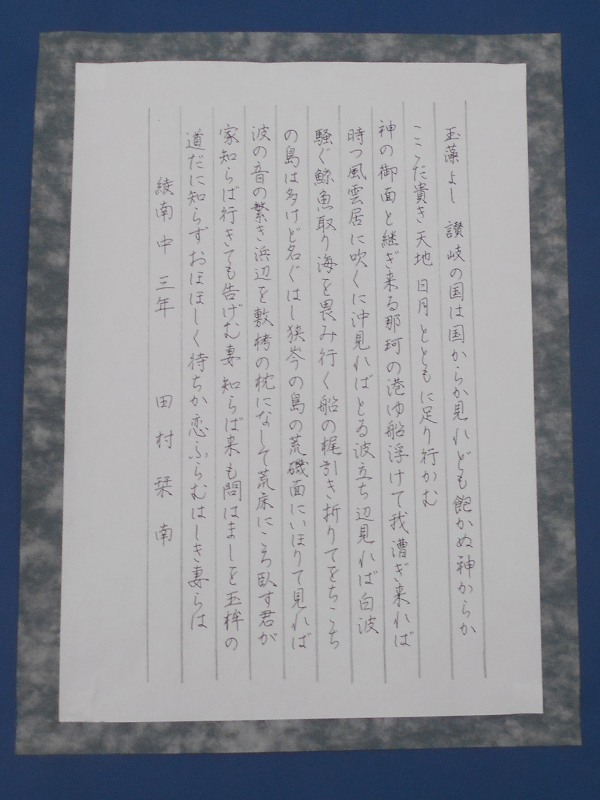 玉藻よし 讃岐の国は国からか見れども飽かぬ神からか
ここだ貴き天地 日月とともに足り行かむ
神の御面と継ぎ来る那珂の港ゆ船浮けて我漕ぎ来れば
時つ風雲居に吹くに沖見ればとゐ波立ち辺見れば白波
騒ぐ鯨魚取り海を畏み行く船の梶引き折りてをちこち
の島は多けど名ぐはし狭岑の島の荒磯面にいほりて見れば
波の音の繁き浜辺を敷栲の枕になして荒床にころ臥す君が
家知らば行きても告げむ妻知らば来も問はましを玉桙の
道だに知らずおほほしく待ちか恋ふらむはしき妻らは
綾南中 三年 田村栞南